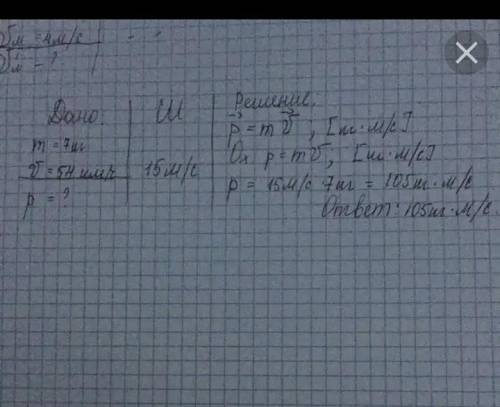 υм = 4м/с
υм - ?
Дано:
m = 7кг
υ = 54 км/ч
p = ?
СИ
15м/с
Решение.
p⃗ = m υ⃗ ; [кг · м/с]
Ox p = mυ ; [кг · м/с]
p = 15м/с 7кг = 105кг · м/с
Ответ: 105кг · м/с